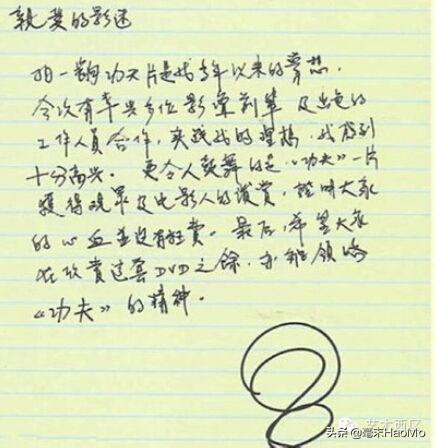 親愛的影迷
拍一齣功夫片是我多年以來的夢想,
今次有幸與多位影壇前輩及出色的
工作人員合作,實踐我的理想,我感到
十分高興。更令人鼓舞的是,“功夫”一片
獲得觀眾及电影人的讚賞,証明大家
的心血並沒有枉費。最后,希望大家
在欣賞这套DVD之餘,亦能領略
“功夫”的精神。
艺术西区
头条@毫末HaoMo